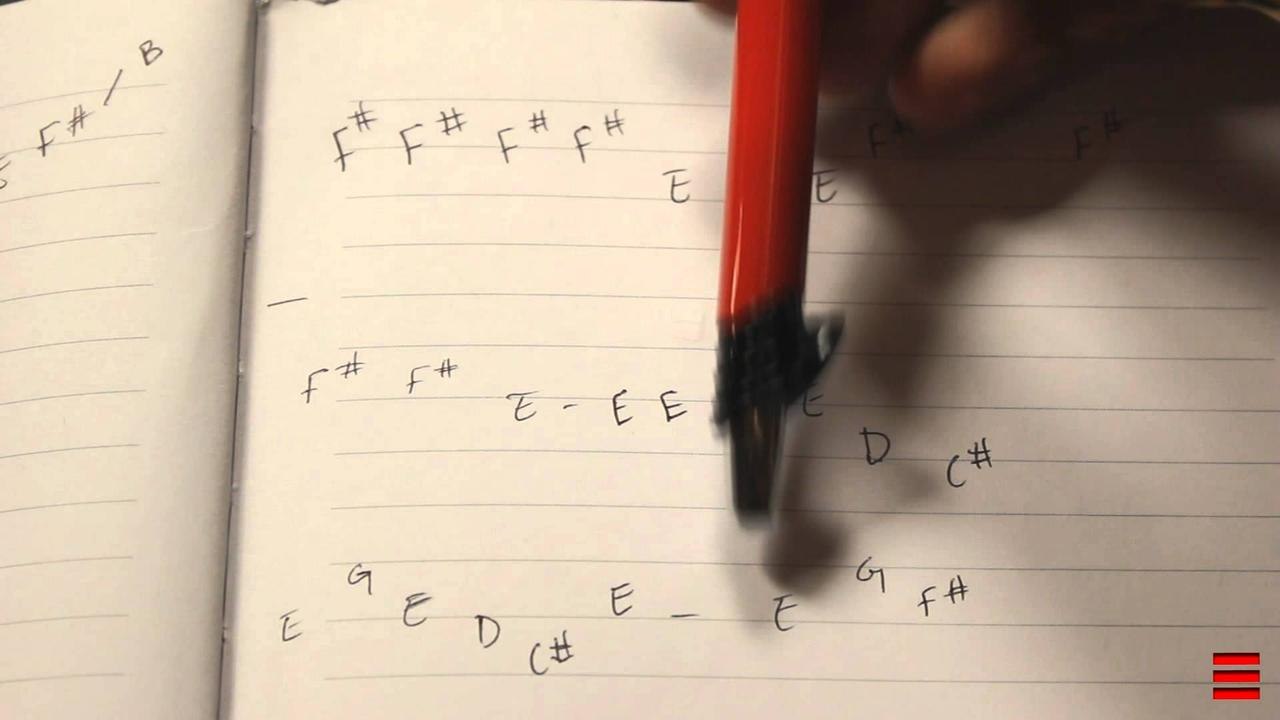 F# / B
F# F# F# F# E E F# F#
—
F# F# E - E E E D C#
E G E D C# E – E G F#